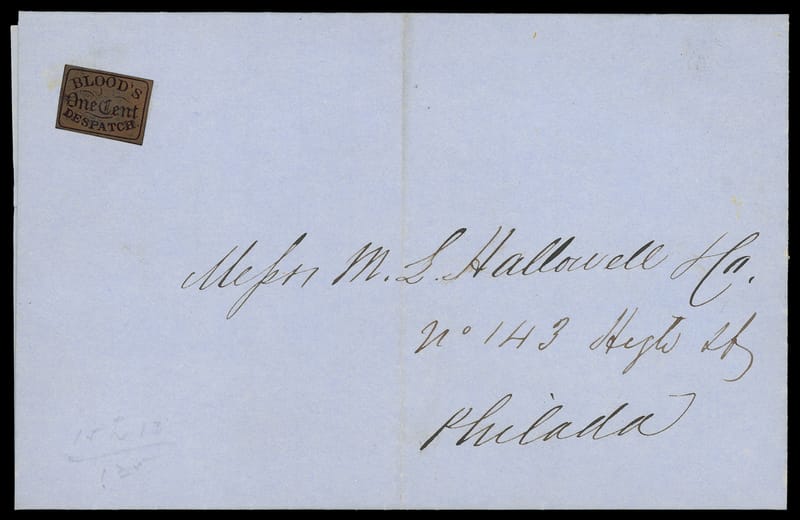 BLOOD'S
One Cent
DESPATCH.
Messrs M. L. Hallowell & Co.
No 143 High St
Philada